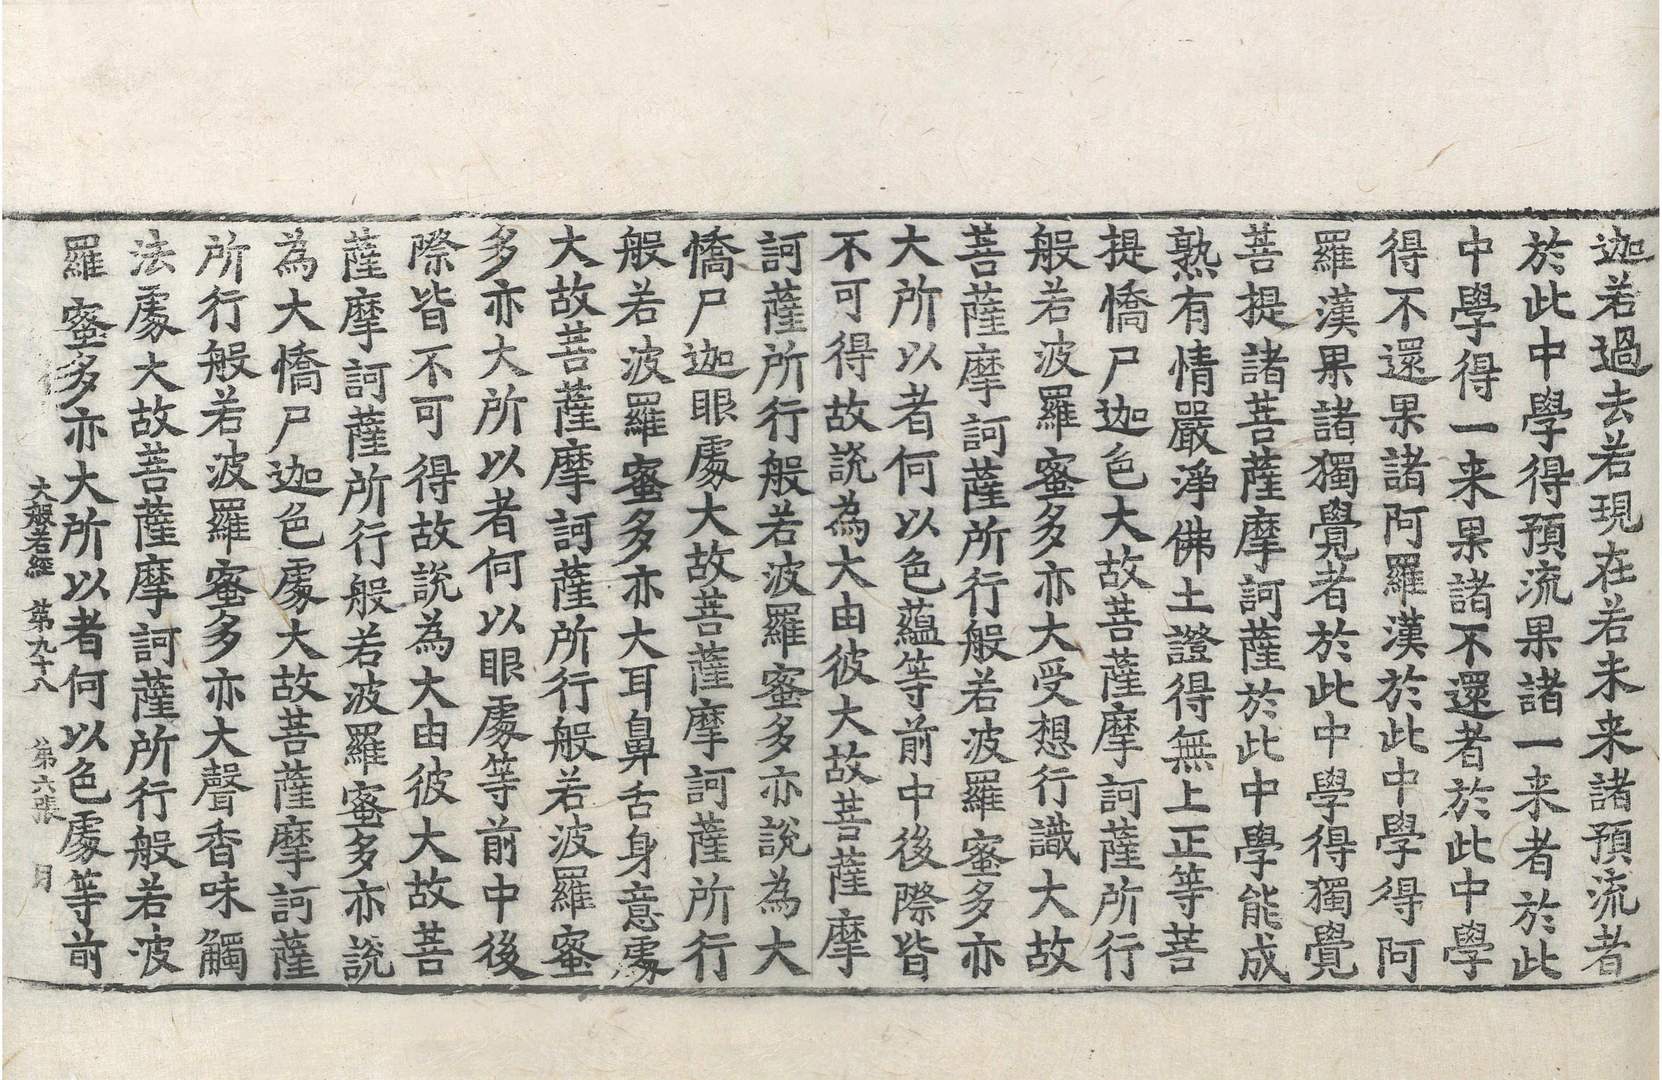 迦若過去若現在若未来諸預流者
於此中學得預流果諸一来者於此
中學得一来果諸不還者於此中學
得不還果諸阿羅漢於此中學得阿
羅漢果諸獨覺者於此中學得獨覺
菩提諸菩薩摩訶薩於此中學能成
熟有情嚴淨佛土證得無上正等菩
提憍尸迦色大故菩薩摩訶薩所行
般若波羅蜜多亦大受想行識大故
菩薩摩訶薩所行般若波羅蜜多亦
大所以者何以色蘊等前中後際皆
不可得故說為大由彼大故菩薩摩
訶薩所行般若波羅蜜多亦說為大
憍尸迦眼處大故菩薩摩訶薩所行
般若波羅蜜多亦大耳鼻舌身意處
大故菩薩摩訶薩所行般若波羅蜜
多亦大所以者何以眼處等前中後
際皆不可得故說為大由彼大故菩
薩摩訶薩所行般若波羅蜜多亦說
為大憍尸迦色處大故菩薩摩訶薩
所行般若波羅蜜多亦大聲香味觸
法處大故菩薩摩訶薩所行般若波
羅蜜多亦大所以者何以色處等前
大般若經 第九十八 第六張 月